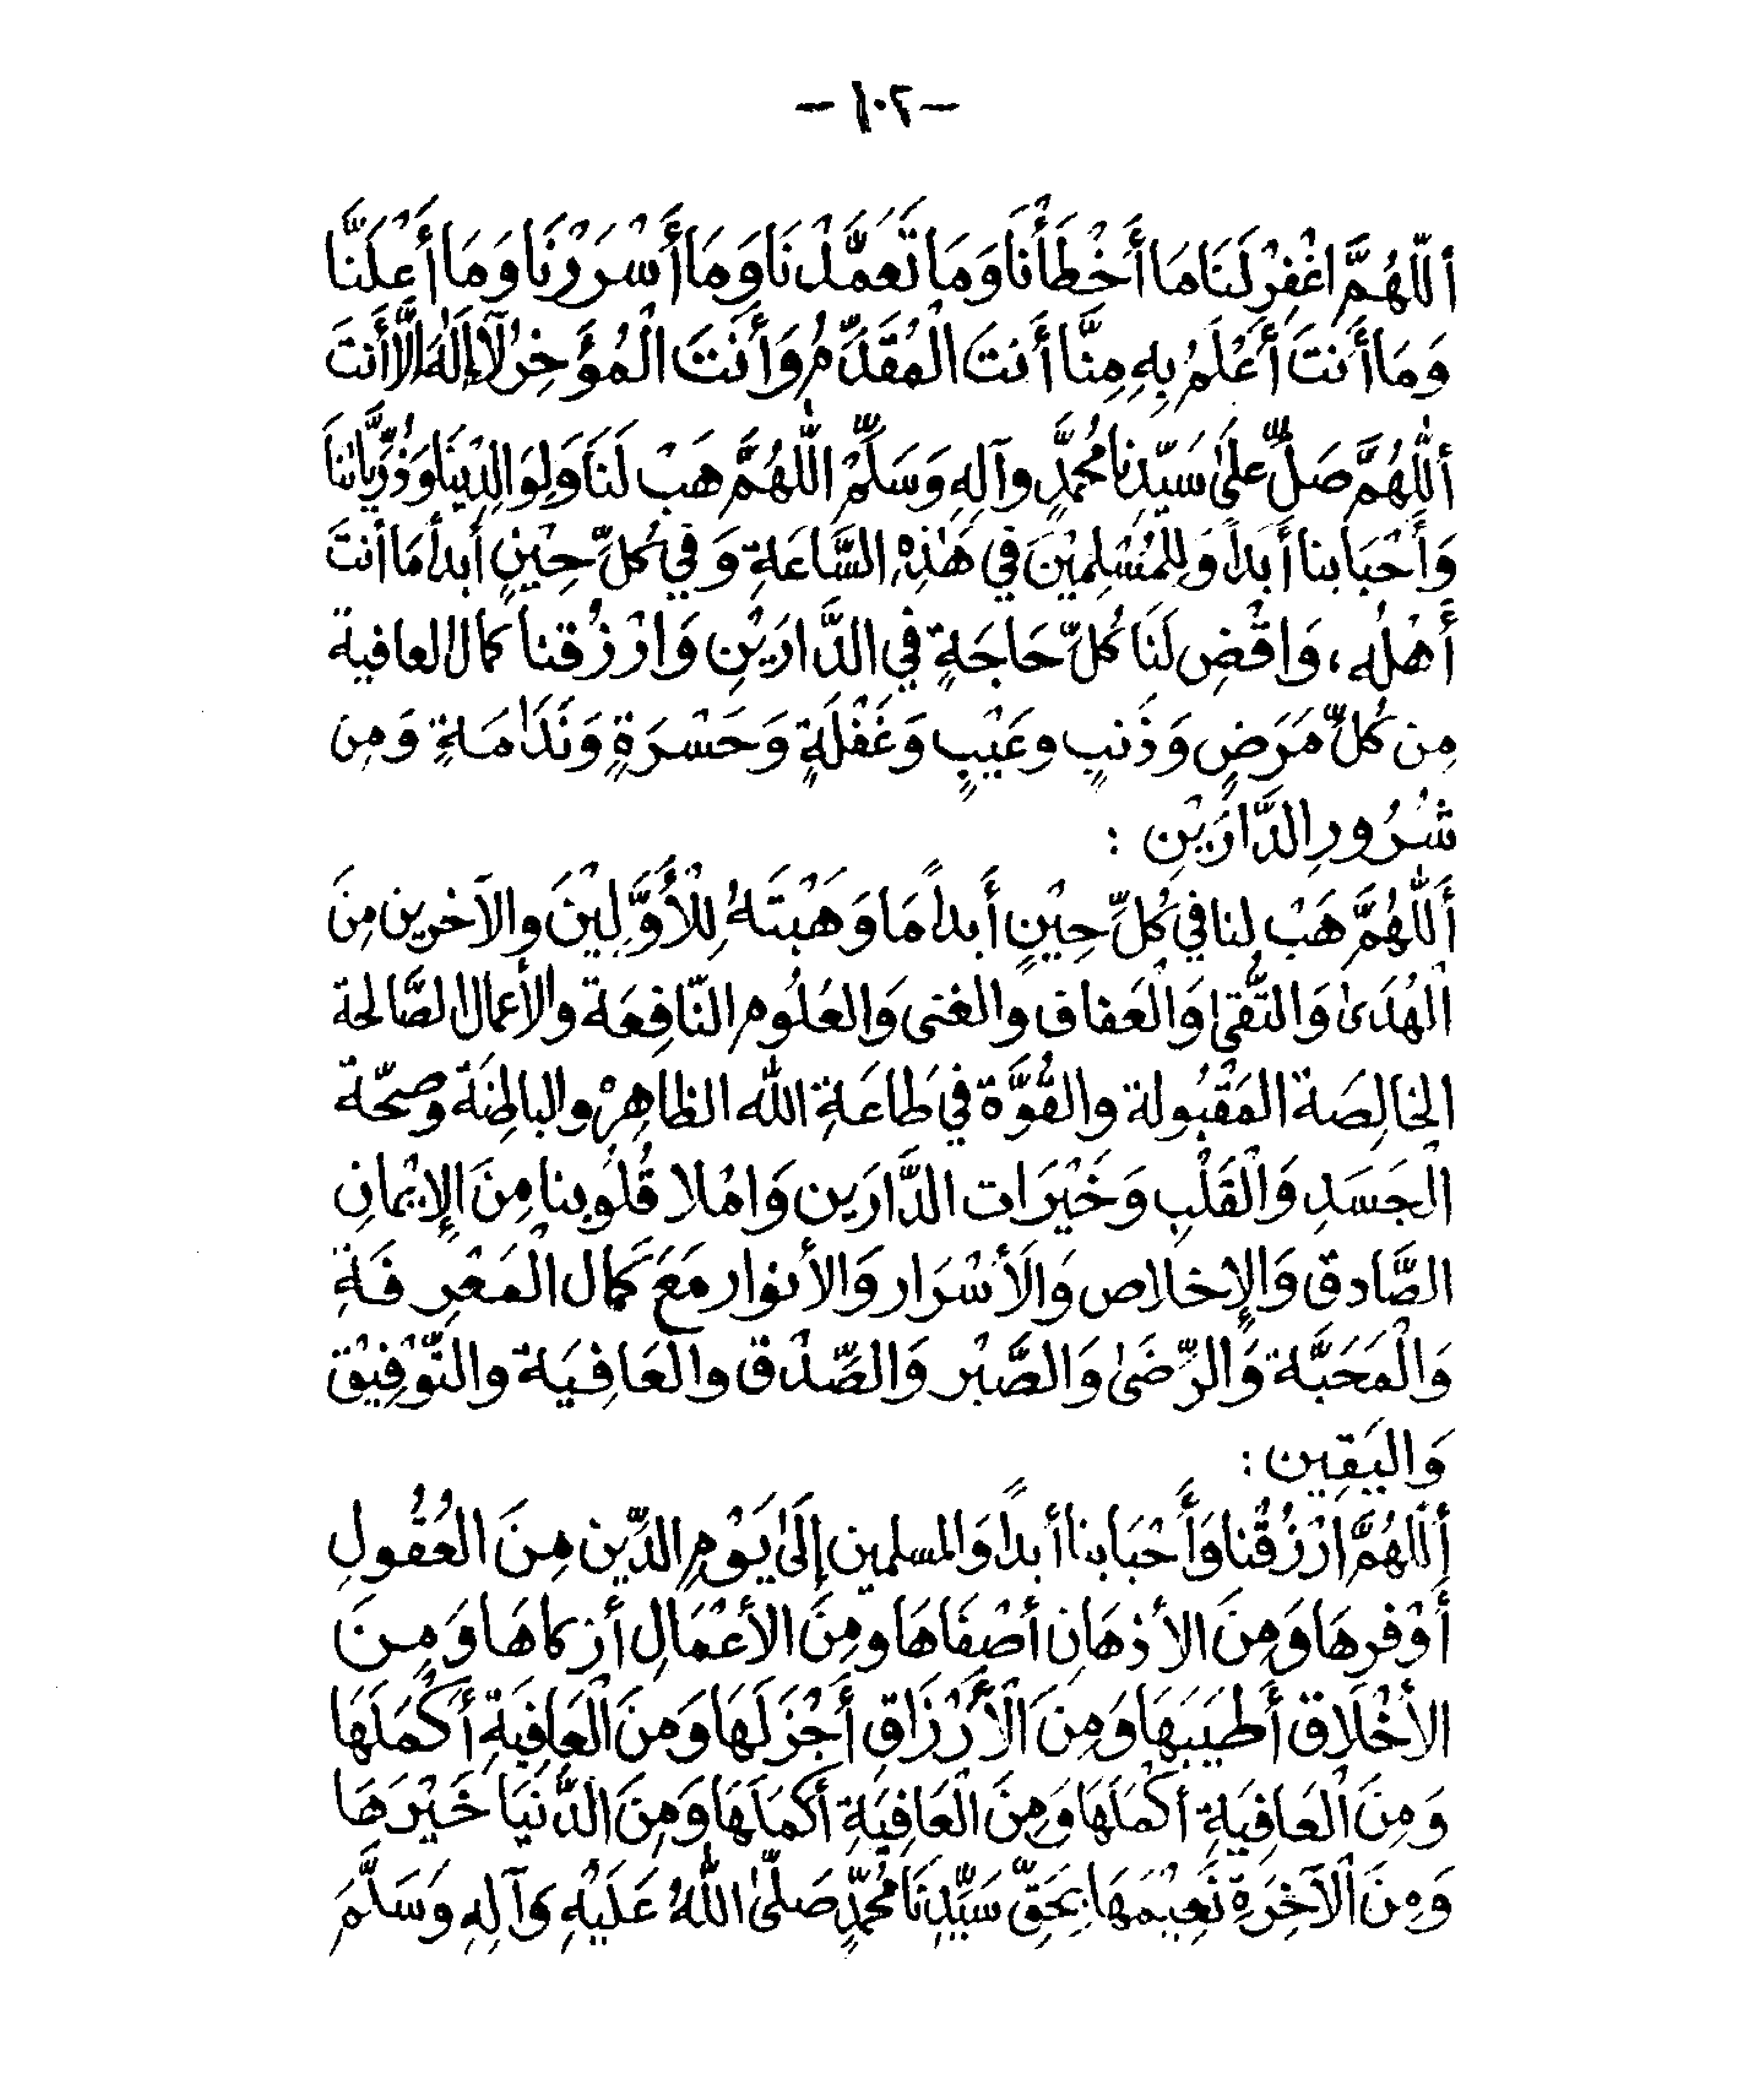 -١٠٢-
أللّهُمَّ اغْفِرْ لَنَا مَا أَخْطَأْنَا وَمَا تَعَمَّدْنَا وَمَا أَسْرَرْنَا وَمَا أَعْلَنَّا
وَمَا أَنتَ أَعْلَمُ بِهِ مِنَّا أَنتَ الْمُقَدِّمُ وَأَنتَ الْمُؤَخِرُ لآ إِلَهَ إِلَّا أَنتَ
أللّٰهُمَّ صَلِّ عَلىٰ سَيّدِنا مُحمَّدٍ وآلِهِ وَسَلِّمْ اللّٰهُمَّ هَبْ لَنَا وَلِوَالِدِينَا وَذُرِّيَّاتنا
وَأَحْبَابنا أَبَداً وَلِلمُسْلِمِيْنَ فِي هَٰذِهِ السَّاعَةِ وَفِي كُلِّ حِيْنٍ أَبداً مَا أَنتَ
أَهْلُه، وَاقْضِ لَنَا كُلِّ حَاجَةٍ فِي الدَّارَيْنِ وَارْزُقنا كمال العافية
مِن كُلِّ مَرَضٍ وَذَنبٍ وعَيْبٍ وَغَفْلَةٍ وَحَسْرَةٍ وَنَدَامَةٍ وَمِن
شُرُورِ الدَّارَيْنِ :
أَللّٰهُمَّ هَبْ لنا فِي كُلِّ حِيْنٍ أَبداً مَا وَهَبْتَهُ لِلْأَوَّلِيْنَ والآخرين مِنَ
الْهُدَىٰ وَالتُّقىٰ وَالْعَفاف والغنى وَالعُلُوم النّافِعَة والأعمال الصَّالحة
الخَالِصَة المَقْبُولة والقُوَّة فِي طَاعَةِ اللّٰه الظاهِرْ والباطِنَة وصِحّة
الْجَسَدِ وَالْقَلْبِ وَخَيْرَات الدَّارَين وَامْلا قُلُوبنا مِنَ الإِيْمَانِ
الصَّادق وَالإِخلاص وَالأَسْرَار وَالأنوار مَعَ كَمال الْمَعْرِفَةِ
وَالْمَحَبَّة وَالرِّضَىٰ وَالصَّبْر وَالصِّدْق والْعَافِيَة والتَّوْفِيْق
وَاليَقِين :
أَللّهُمَّ ارْزُقْنا وَأَحْبَابنا أبداً وَالمسلمين إِلَىٰ يَوْمِ الدِّين مِنَ العُقُولِ
أَوْفرِهَا وَمِنَ الأذهَانِ أصْفَاهَا ومِنَ الأعْمَالِ أزكاهَا وَمِنَ
الأخْلَاق أَطيَبَهَا وَمِنَ الْأَرْزَاقِ أَجْزَلَهَا وَمِنَ الْعَافِيَةِ أَكْمَلَهَا
وَمِنَ الْعَافِيَةِ أَكْمَلَهَا وَمِنَ الْعَافِيَةِ أَكْمَلَهَا وَمِنَ الدُّنْيَا خَيْرَهَا
وَمِنَ الْآخِرَةِ نَعِيْمَهَا بِحَقِّ سَيِّدِنَا مُحَمَّدٍ صَلَّىٰ اللّٰهُ عَلَيْهِ وَآلِهِ وَسَلَّمَ